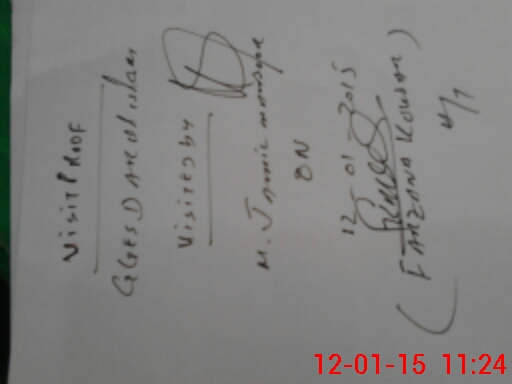 VISIT PROOF
GGES DAREOL islam
Visited by
M. Jamil
ON
12-01-2015
(FARZANA KOUSAR)
12-01-15 11:24